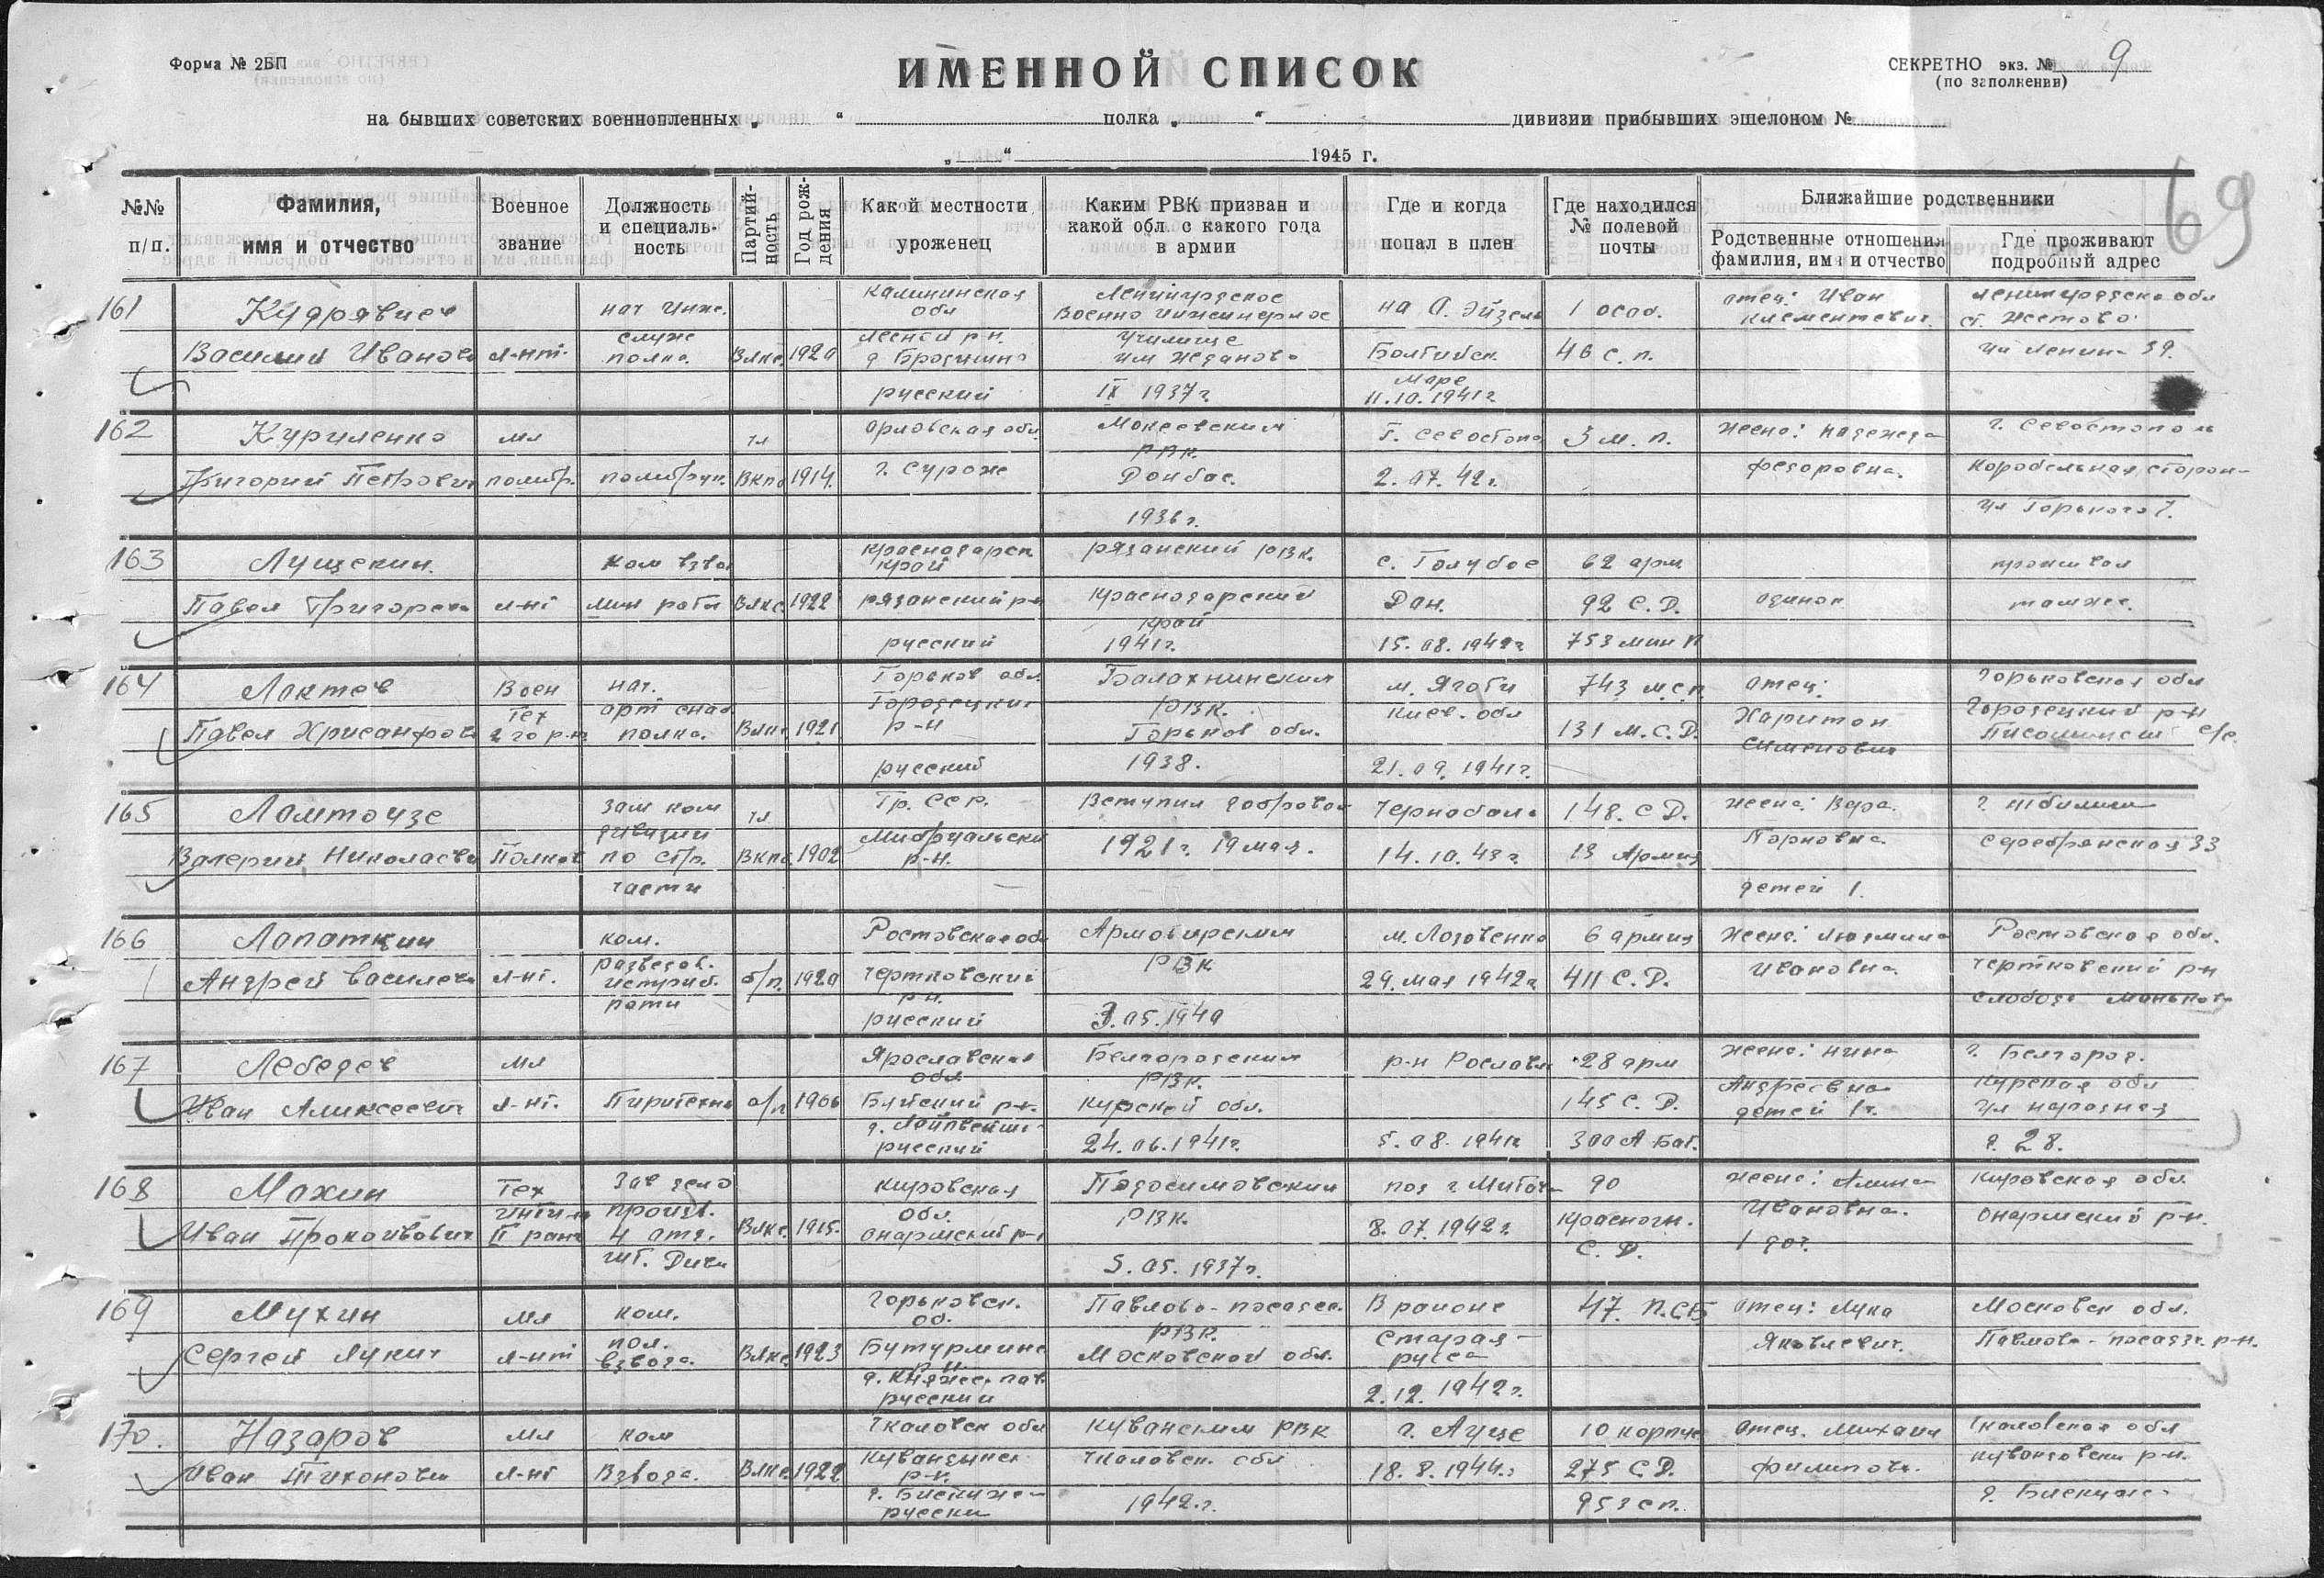 Форма № 2БП
ИМЕННОЙ СПИСОК
СЕКРЕТНО экз. № 9
(по заполнении)
на бывших советских военнопленных „ “ полка „ “ дивизии прибывших эшелоном №
„ “ 1945 г.
69
№№ п/п.
Фамилия, имя и отчество
Военное звание
Должность и специальность
Партий-ность
Год рож-дения
Какой местности уроженец
Каким РВК призван и какой обл. с какого года в армии
Где и когда попал в плен
Где находился № полевой почты
Ближайшие родственники
Родственные отношения фамилия, имя и отчество
Где проживают подробный адрес
161
Кудрявцев
Василий Иванов
л-нт.
нач инж.
служ
полка.
Влкс. 1920
Калининская
обл
Лесной р-н.
русский
Ленинградское
Военно инженерное
училище
им Жданова
IX 1937г
на О. Эйзель
Балтийск.
Море
11.10.1941г
1 особ.
46 с. п.
отец: Иван
Клементевич.
Ленинградская обл
ул Ленина 39.
162
Куриленко
Григорий Петрович
мл
политр.
политрук.
чл
Вкпб 1914.
Орловская обл.
г. Сураж
РВК.
Донбас.
1936г.
г. Севостопо
2.07.42г.
5 м. п.
жена: Надежда
Федоровна.
г. Севостополь
Корабельная сторон-
ул Горького 7.
163
Лущекин.
Павел Григорев
л-нт
ком взво
мин роты
Влкс 1922
Краснодарск.
край
рязанский р-н
русский
рязанский РВК.
Краснодарский
край
1941г.
с. Голубое
Дон.
15.08.1942г
62 арм
92 С.Д.
753 мин п
одинок
проживал
тамже.
164
Локтев
Павел Хрисанфов
Воен
тех
2 го р-н.
нач.
арт снаб.
полка.
Влкс. 1921
Горьков обл.
Городецкий
р-н
русский
Балахнинским
РВК.
Горьков обл.
1938.
м. Яготи
Киев. обл
21.09.1941г.
743 м.с.п.
131 М.С.Д.
отец:
Харитон
Горьковская обл
Городецкий р-н
с/с.
165
Ломтодзе
Валерий Николаеви
Полков
зам ком
дивизии
по стр.
части
чл
Вкпб 1902
Гр. ССР.
р-н.
Вступил доброво
1921г. 19 мая.
Чернобаль
14.10.43г
148. С.Д.
13 Армия
жена: Вера.
детей 1.
г. Тбилиси
Серебрянская 33
166
Лопаткин
Андрей Василеви
л-нт.
ком.
развед.
истриб.
роти
б/п. 1920
Ростовская обл
Чертковский
р-н.
русский
Армавирским
РВК
3.05.1940
м. Лозовенка
29. мая 1942г
6 армия
411 С.Д.
жена: Людмила
Ивановна.
Ростовская обл.
Чертковский р-н
слобода Маньков
167
Лебедев
Иван Алексеевич
мл
л-нт.
Пиритехни
б/п 1906
Ярославская
обл
Буйский р-н.
русский
Белгородским
РВК.
Курской обл.
24.06.1941г.
р-н Рославл
5.08.1941г
28 арм
145 С. Д.
300 А Бат.
жена: Нина
Андреевна
детей 1ч.
г. Белгород.
Курская обл
ул народная
д. 28.
168
Мохин
Иван Прокопьвович
Тех
интен
II ранг
Зав дело
произв.
4 отд.
шт. Диви
Влкс. 1915.
Кировская
обл.
Опаринский р-н
Подосиновским
РВК.
5.05.1937г.
8.07.1942г.
90
Красногн.
С. Д.
жена: Алина
Ивановна.
1 доч.
Кировская обл
Опаринский р-н.
169
Мухин
Сергей Лукич
мл
л-нт
ком.
пол.
взвода.
Влкс. 1923
Горьковск.
об.
Бутурлинс
р-н.
русский
Павлово-посадск.
РВК.
Московской обл.
В районе
Старая-
русса
2.12.1942г.
47. П.СБ
отец: Лука
Яковлевич.
Московск обл.
Павлово-посадск. р-н.
170.
Назаров
Иван Тихонович
мл
л-нт
ком
Взвода.
Влкс. 1922
Чкаловск обл
Кувандыкс
р-н.
русски
Куванским РВК
Чкаловск. обл
1942.г.
г. Ауце
18.8.1944.г
10 корпус
275 С.Д.
953 сп.
отец. Михаил
Филипов.
Чкаловская обл
Кувандовски р-н.